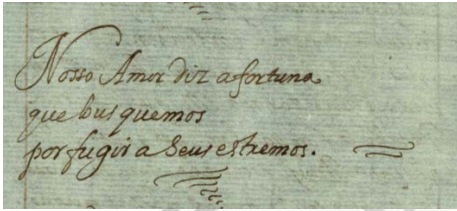 Nosso Amor diz a fortuna
que busquemos
por fugir a seus estremos.